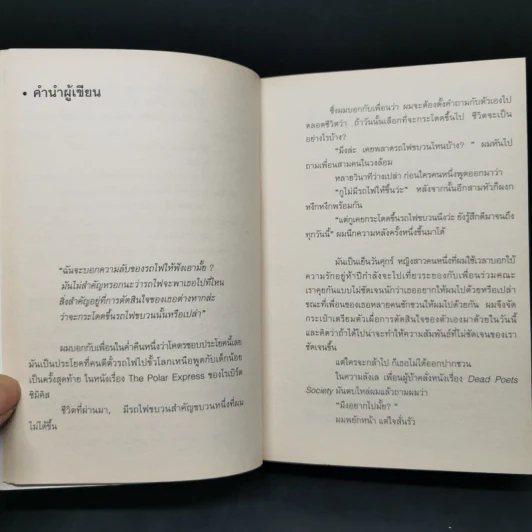 • คำนำผู้เขียน
"ฉันจะบอกความลับของรถไฟให้ฟังเอามั้ย ?
มันไม่สำคัญหรอกนะว่ารถไฟจะพาเธอไปที่ไหน
สิ่งสำคัญอยู่ที่การตัดสินใจของเธอต่างหากล่ะ
ว่าจะกระโดดขึ้นรถไฟขบวนนั้นหรือเปล่า"
ผมบอกกับเพื่อนในค่ำคืนหนึ่งว่าโคตรชอบประโยคนี้เลย
มันเป็นประโยคที่คนตีตั๋วรถไฟไปขั้วโลกเหนือพูดกับเด็กน้อย
เป็นครั้งสุดท้าย ในหนังเรื่อง The Polar Express ของโรเบิร์ต
ซิมิคิส
ชีวิตที่ผ่านมา, มีรถไฟขบวนสำคัญขบวนหนึ่งที่ผม
ไม่ได้ขึ้น
ซึ่งผมบอกกับเพื่อนว่า ผมจะต้องตั้งคำถามกับตัวเองไป
ตลอดชีวิตว่า ถ้าวันนั้นเลือกที่จะกระโดดขึ้นไป ชีวิตจะเป็น
อย่างไรบ้าง?
"มึงล่ะ เคยพลาดรถไฟขบวนไหนบ้าง? " ผมหันไป
ถามเพื่อนสามคนในวงล้อม
หลายวินาทีว่างเปล่า ก่อนใครคนหนึ่งพูดออกมาว่า
"กูไม่มีรถไฟให้ขึ้นว่ะ" หลังจากนั้นอีกสามหัวก็ผงก
หงึกหงักพร้อมกัน
"แต่กูเคยกระโดดขึ้นรถไฟขบวนนึงว่ะ ยังรู้สึกดีมาจนถึง
ทุกวันนี้" ผมนึกความหลังครั้งหนึ่งขึ้นมาได้
มันเป็นเย็นวันศุกร์ หญิงสาวคนหนึ่งที่ผมใช้เวลาบอกใบ้
ความรักอยู่ห้าปีกำลังจะไปเที่ยวระยองกับเพื่อนร่วมคณะ
เราคุยกันแบบไม่ชัดเจนนักว่าเธออยากให้ผมไปด้วยหรือเปล่า
ขณะที่เพื่อนของเธอหลายคนชักชวนให้ผมไปด้วยกัน ผมจึงจัด
กระเป๋าเตรียมตัวเผื่อการตัดสินใจของตัวเองมาด้วยในวันนี้
และคิดว่าถ้าได้ไปน่าจะทำให้ความสัมพันธ์ที่ไม่ชัดเจนของเรา
ชัดเจนขึ้น
แต่ใครจะกล้าไป ก็เธอไม่ได้ออกปากชวน
ในความลังเล เพื่อนผู้บ้าคลั่งหนังเรื่อง Dead Poets
Society มันตบไหล่ผมแล้วถามผมว่า
"มึงอยากไปมั้ย? "
ผมพยักหน้า แต่ใจสั่นรัว